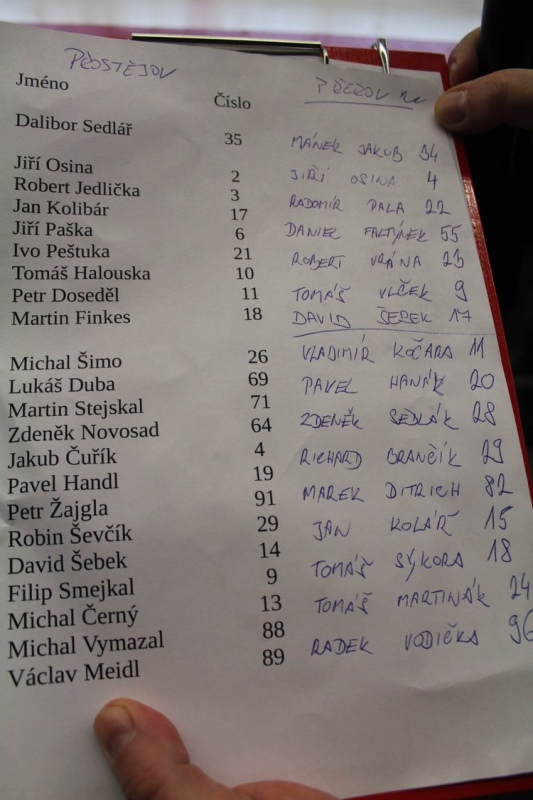 PROSTĚJOV
Jméno
Číslo
Dalibor Sedlář 35
Jiří Osina 2
Robert Jedlička 3
Jan Kolibár 17
Jiří Paška 6
Ivo Peštuka 21
Tomáš Halouska 10
Petr Doseděl 11
Martin Finkes 18
Michal Šimo 26
Lukáš Duba 69
Martin Stejskal 71
Zdeněk Novosad 64
Jakub Čuřík 4
Pavel Handl 19
Petr Žajgla 91
Robin Ševčík 29
David Šebek 14
Filip Smejkal 9
Michal Černý 13
Michal Vymazal 88
Václav Meidl 89
PŘEROV
MÁNEK JAKUB 34
JIŘÍ OSINA 4
RADOMÍR PALA 22
DANIEL 55
ROBERT VRÁNA 23
TOMÁŠ VLČEK 9
DAVID ŠEBEK 17
VLADIMÍR KOČARA 11
PAVEL HANÁK 20
ZDENĚK SEDLÁK 28
RICHARD BRANČÍK 29
MAREK DITRICH 82
JAN KOLÁŘ 15
TOMÁŠ SÝKORA 18
TOMÁŠ MARTINÁK 24
RADEK VODIČKA 96